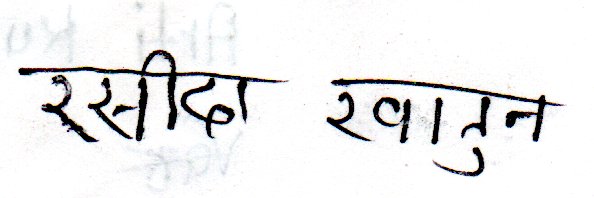 रसीदा खातुन